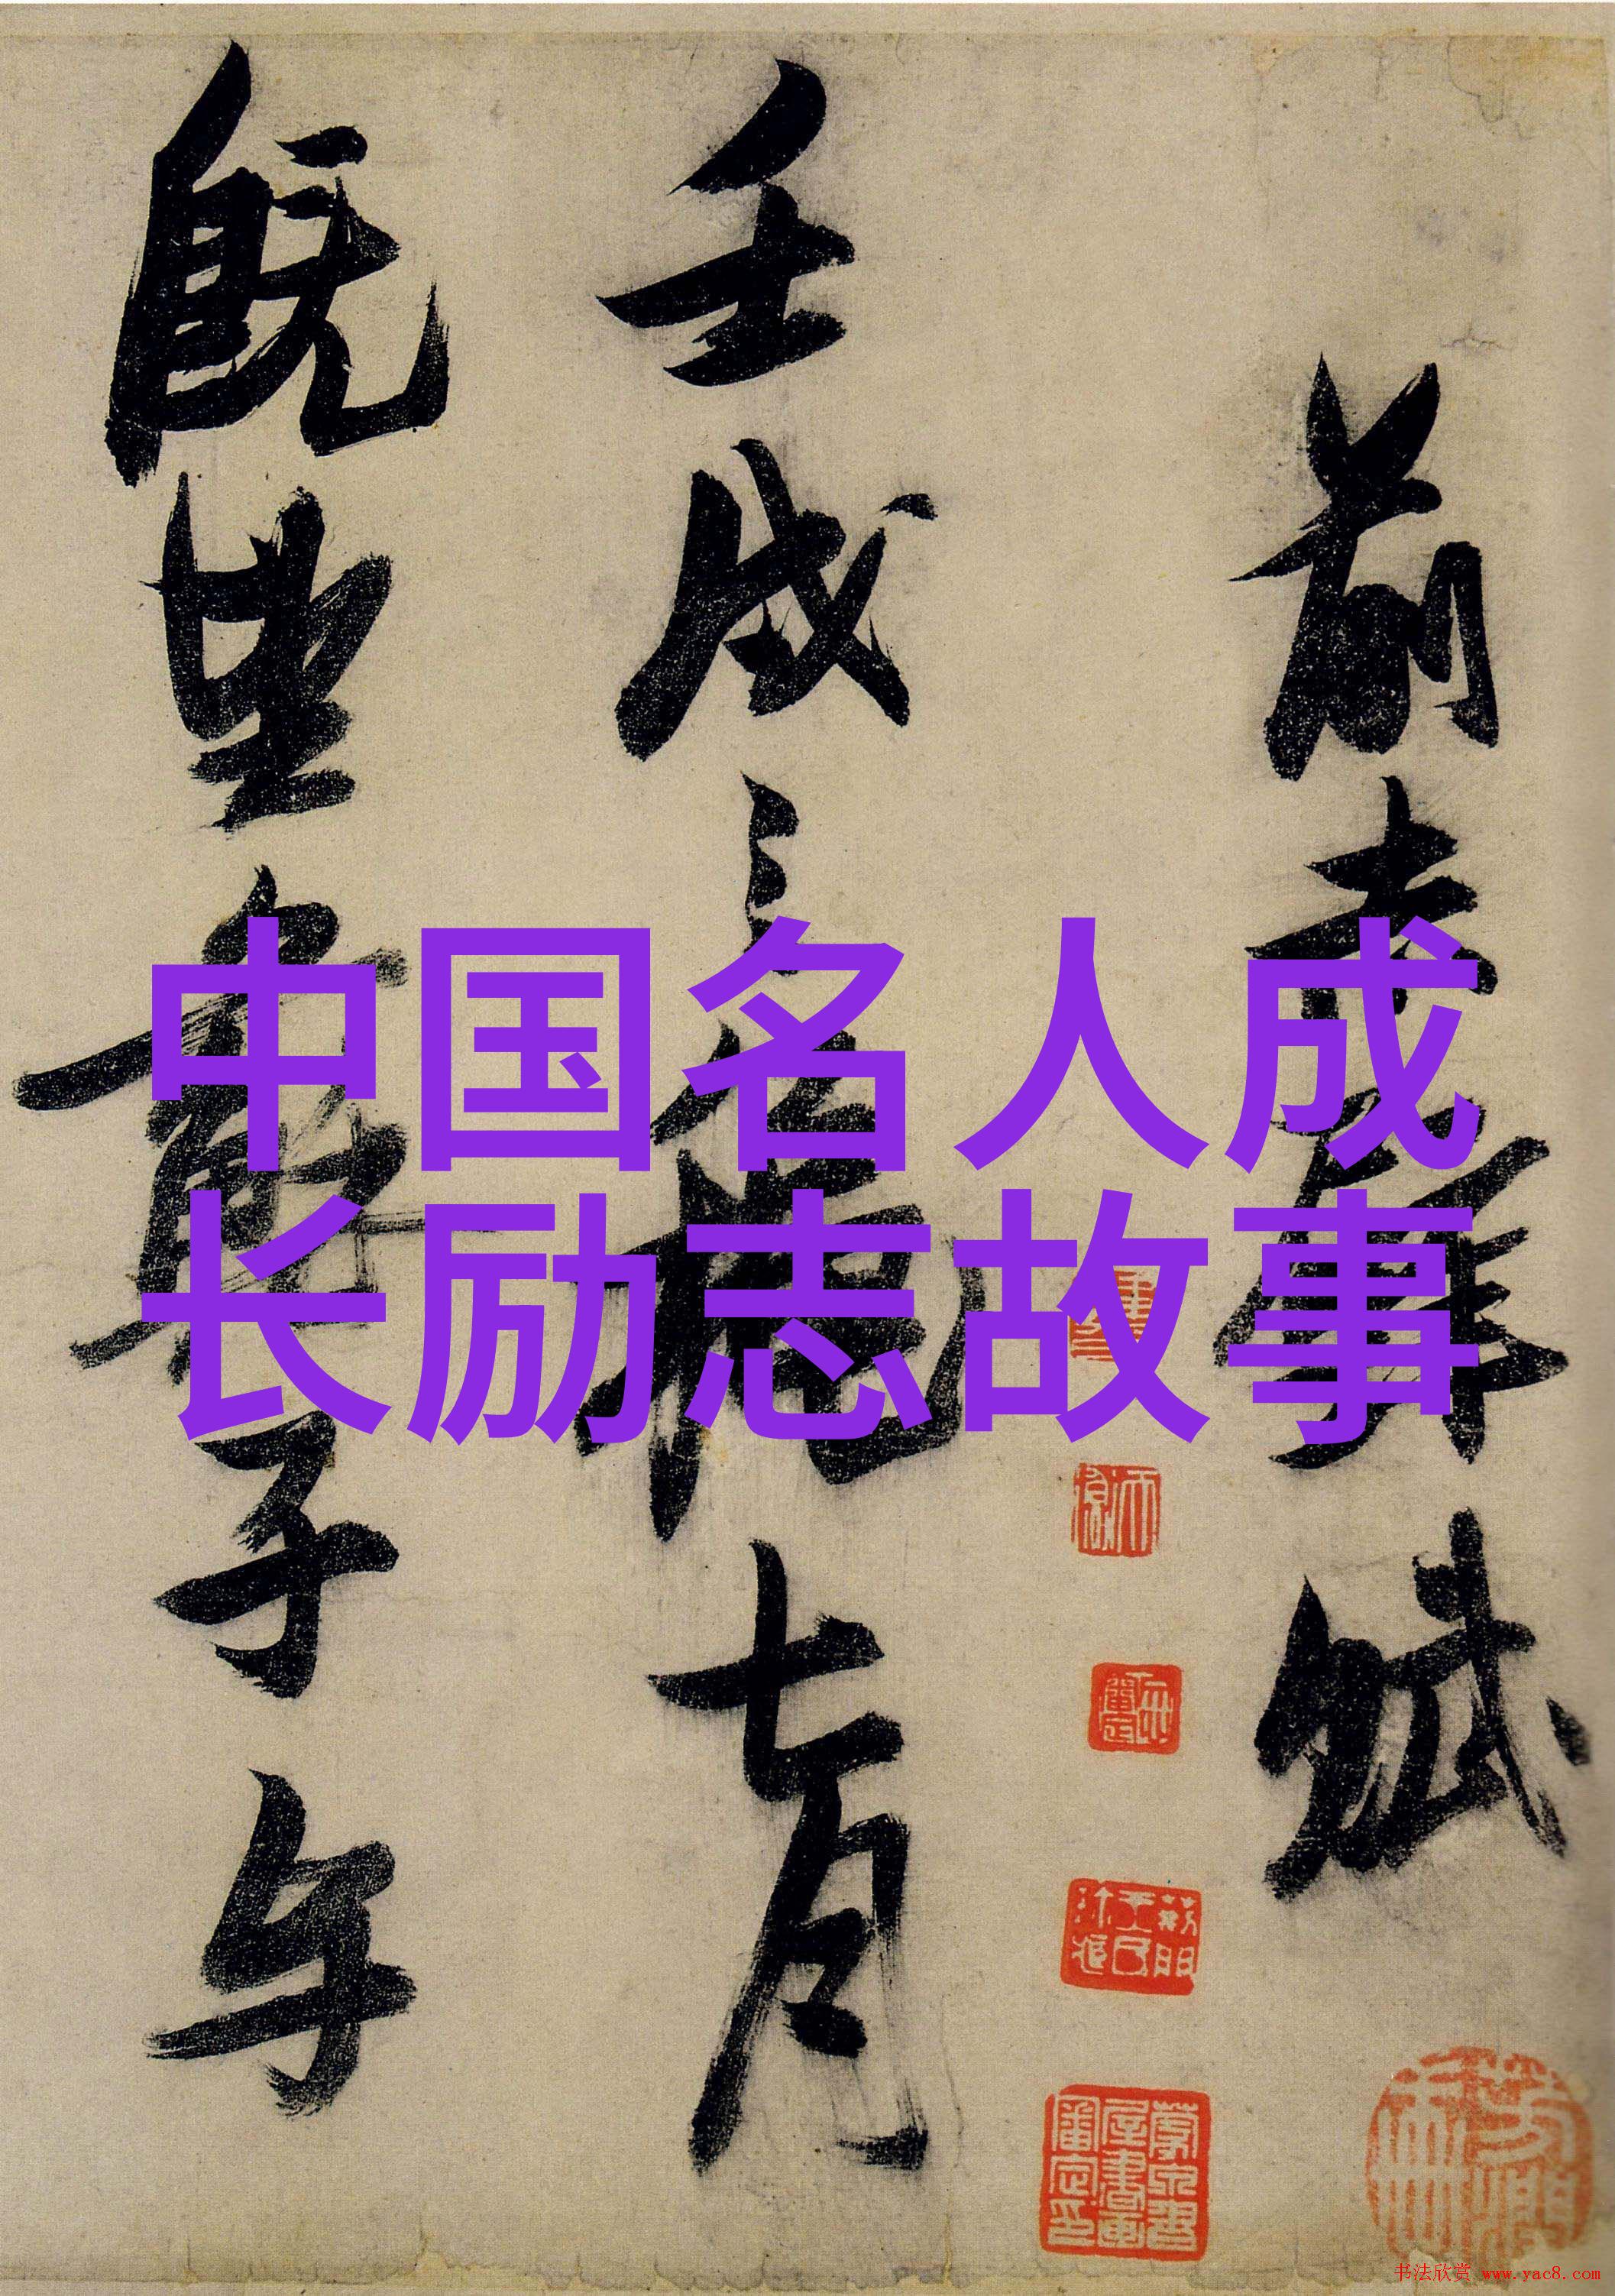 前赤壁賦
壬戌之秋七月
既望蘇子与
中国名人成
长励志故事
书法欣赏 www.yac8.com